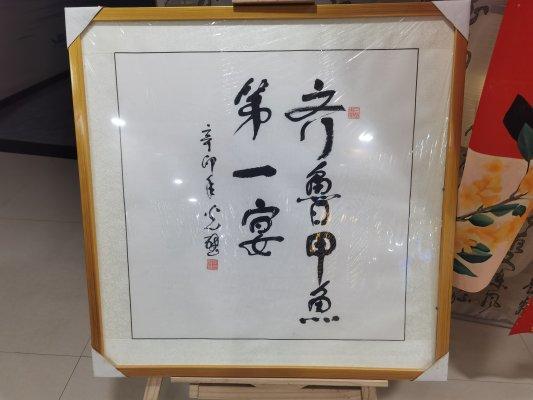 齐鲁甲鱼
第一宴
辛卯年